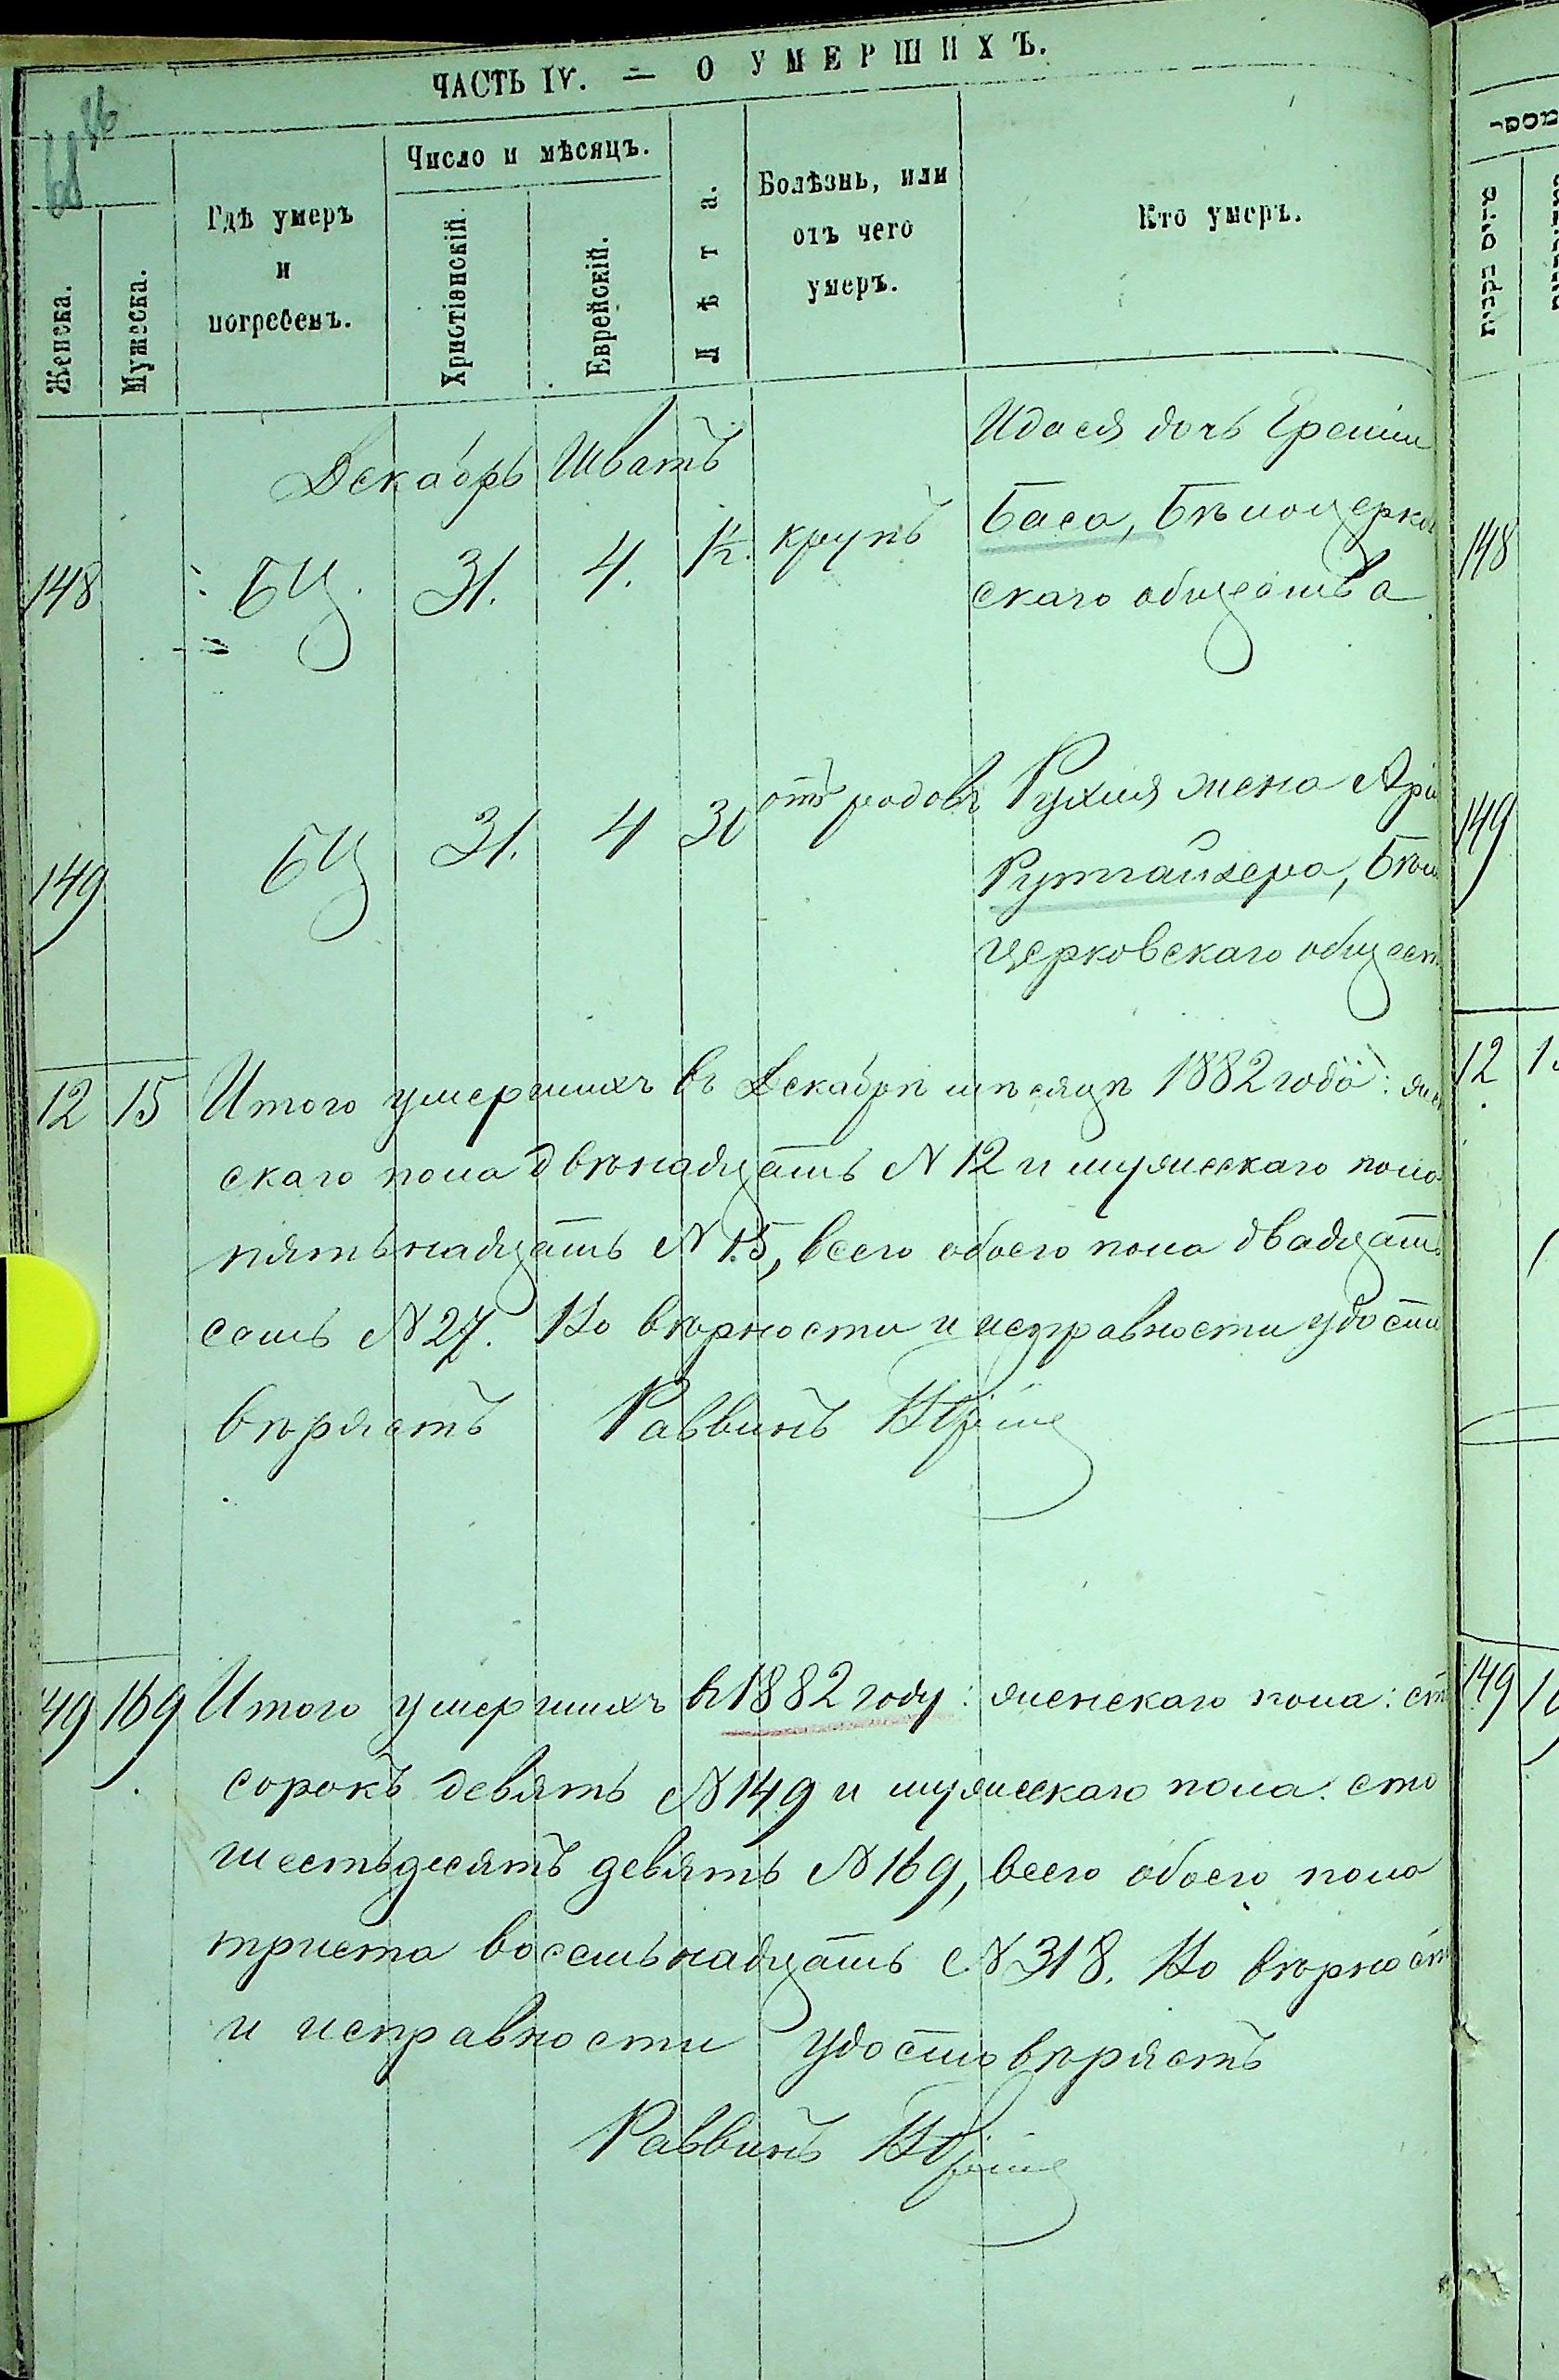 ЧАСТЬ IV. — О УМЕРШИХЪ.
Женска.
Мужеска.
Гдѣ умеръ
и
погребенъ.
Число и мѣсяцъ.
Христіянскій.
Еврейскій.
Лѣта.
Болѣзнь, или
отъ чего
умеръ.
Кто умеръ.
Декабрь Шватъ
148 БЦ. 31. 4. 1½. крупъ
Идася дочь
Баса, Бѣлоцерков
скаго общества.
149 БЦ 31. 4 30 отъ родовъ
Рухля жена
Рутгайзера, Бѣло
церковскаго общест
12 15 Итого умершихъ въ Декабрѣ мѣсяцѣ 1882 года: жен
скаго пола двѣнадцать N 12 и мужескаго пола
пятьнадцать N 15, всего обоего пола двадцать
семь N 27. Но вѣрности и исправности удосто
вѣряетъ Раввинъ
149 169 Итого умершихъ въ 1882 году: женскаго пола: сто
сорокъ девять N 149 и мужескаго пола: сто
шестьдесятъ девять N 169, всего обоего пола
триста восемьнадцать N 318. Но вѣрност
и исправности удостовѣряетъ
Раввинъ
מספר
148
149
12
149